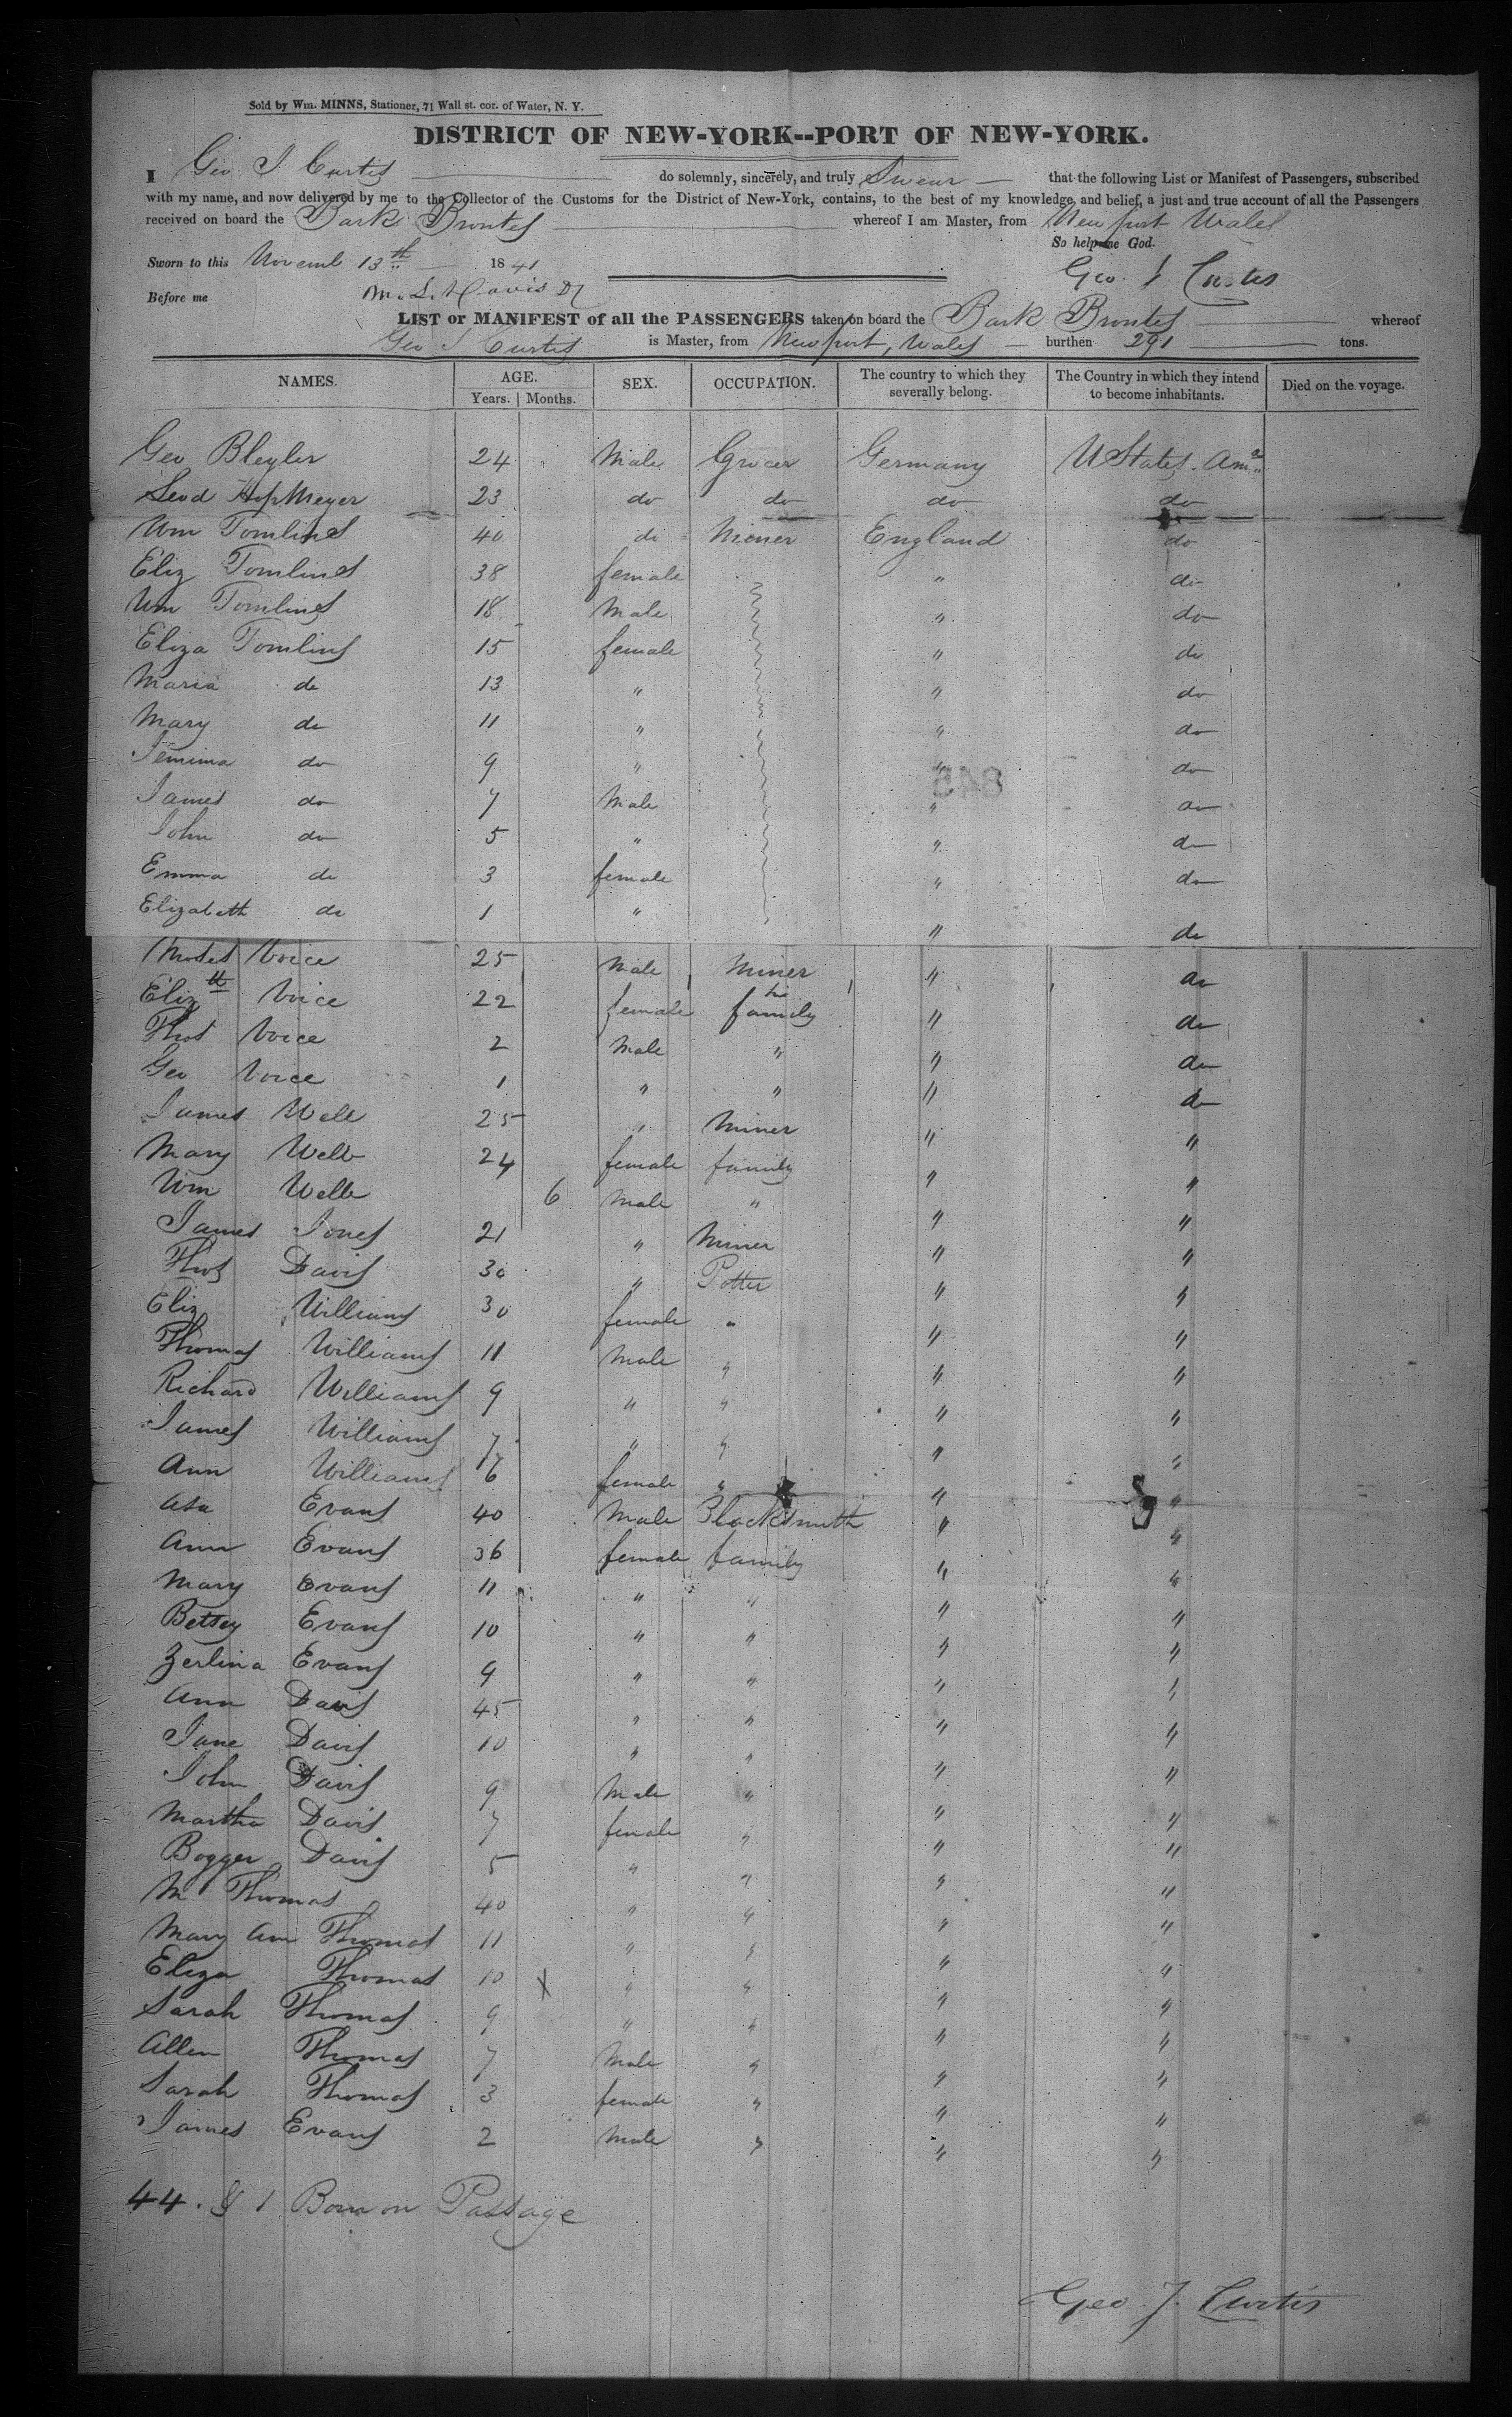 Sold by Wm. MINNS, Stationer, 71 Wall st. cor. of Water, N. Y.
DISTRICT OF NEW-YORK--PORT OF NEW-YORK.
I Geo. J Curtis do solemnly, sincerely, and truly Swear that the following List or Manifest of Passengers, subscribed
with my name, and now delivered by me to the Collector of the Customs for the District of New-York, contains, to the best of my knowledge and belief, a just and true account of all the Passengers
received on board the Bark Brontes whereof I am Master, from Newport Wales
So help me God.
Sworn to this Novemb 13th 1841 Geo. J. Curtis
Before me M. L. Davis
LIST or MANIFEST of all the PASSENGERS taken on board the Bark Brontes whereof
Geo J Curtis is Master, from Newport, Wales burthen 291 tons.
NAMES. AGE. SEX. OCCUPATION. The country to which they severally belong. The Country in which they intend to become inhabitants. Died on the voyage.
Years. Months.
Geo Bleyler 24 Male Grocer Germany U States. Ama
HopMeyer 23 do do do do
Wm Tomlins 40 do Miner England do
Eliz Tomlins 38 female " do
Wm Tomlins 18 Male " do
Eliza Tomlins 15 female " do
Maria do 13 " " do
Mary do 11 " " do
Jemima do 9 " " do
James do 7 Male " do
John do 5 " " do
Emma do 3 female " do
Elizabeth do 1 " " do
Moses Voice 25 Male Miner " do
Elizth Voice 22 female his family " do
Thos Voice 2 Male " " do
Geo Voice 1 " " " do
James Webb 25 " Miner " "
Mary Webb 24 female family " "
Wm Webb 6 Male " " "
James Jones 21 " Miner " "
Thos Davis 30 " Potter " "
Eliz Williams 30 female " " "
Thomas Williams 11 Male " " "
Richard Williams 9 " " " "
James Williams 7 " " " "
Ann Williams 6 female " " "
Asa Evans 40 Male Blacksmith " "
Ann Evans 36 female family " "
Mary Evans 11 " " " "
Betsey Evans 10 " " " "
Zerlina Evans 9 " " " "
Ann Davis 45 " " " "
Jane Davis 10 " " " "
John Davis 9 Male " " "
Martha Davis 7 female " " "
Bogger Davis 5 " " " "
M Thomas 40 " " " "
Mary Ann Thomas 11 " " " "
Eliza Thomas 10 X " " " "
Sarah Thomas 9 " " " "
Allen Thomas 7 Male " " "
Sarah Thomas 3 female " " "
James Evans 2 Male " " "
44. & 1 Born on Passage
Geo. J. Curtis